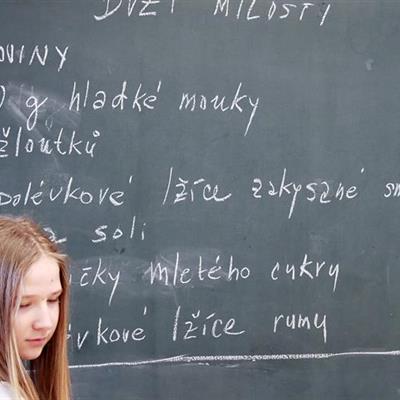 BOŽÍ MILOSTI
OVINY
0 g hladké mouky
žloutků
polévkové lžíce zakysané sm
soli
ičky mletého cukru
vkové lžíce rumu